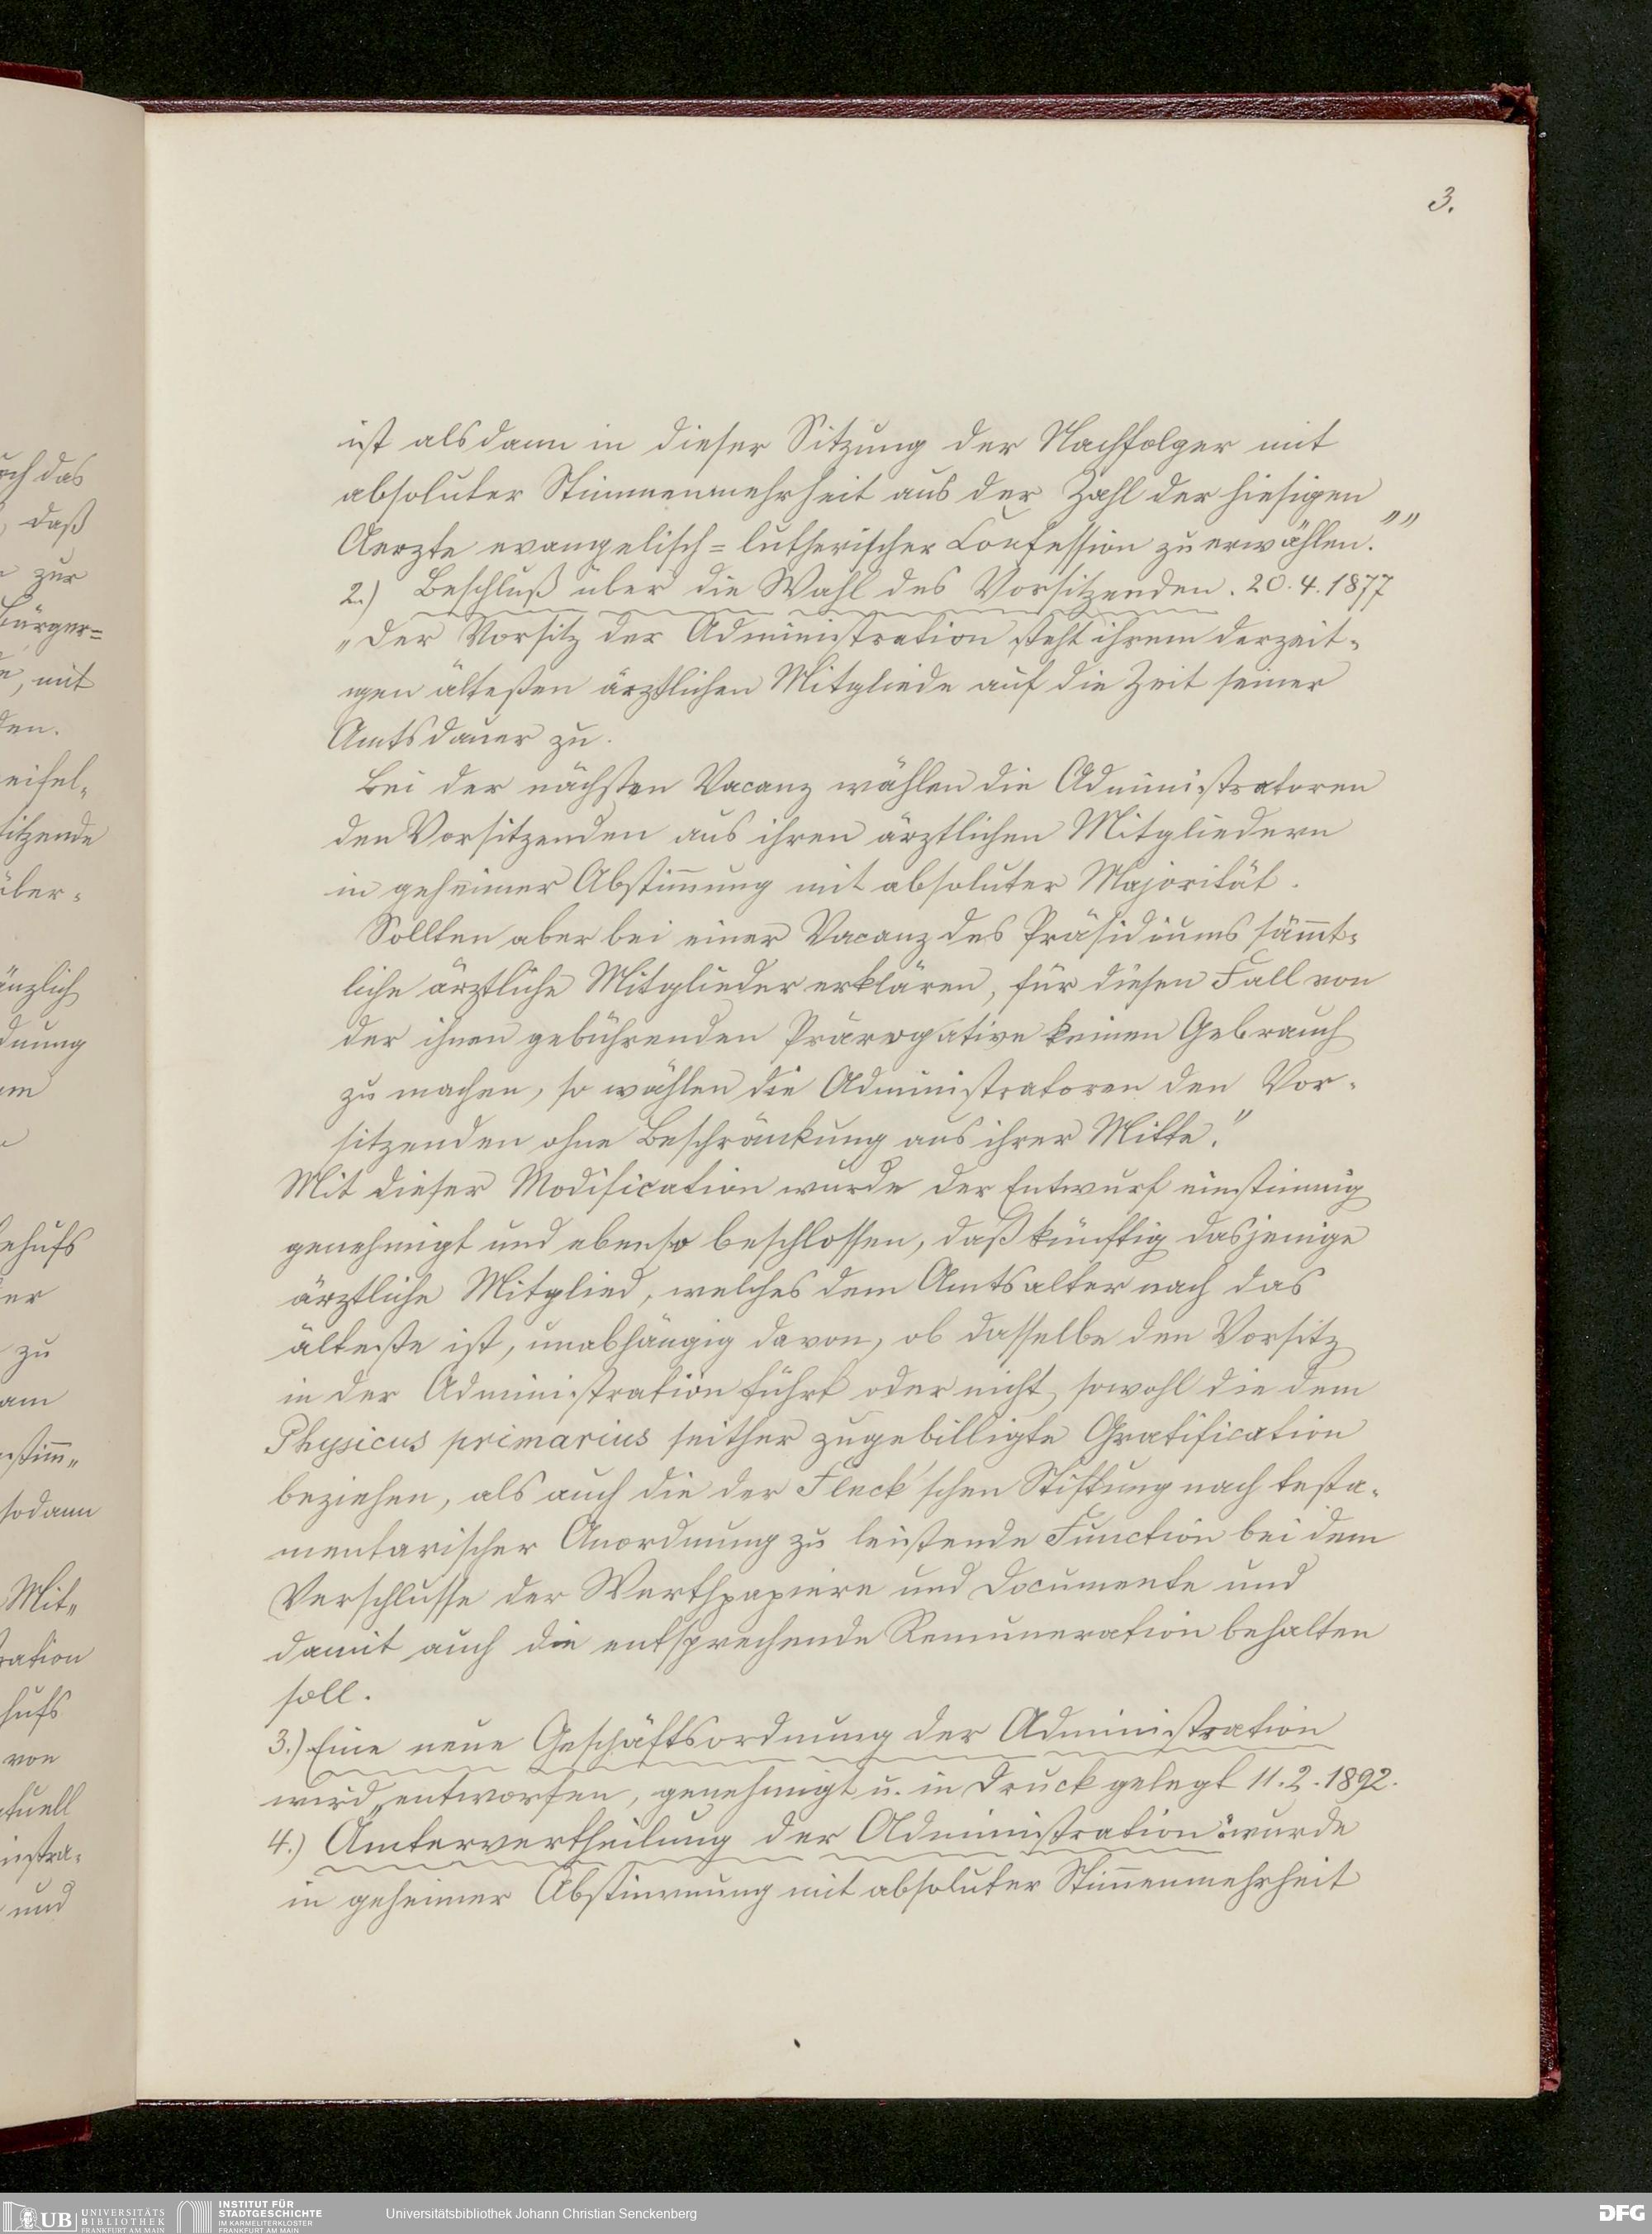 3.
ist alsdann in dieser Sitzung der Nachfolger mit
absoluter Stimmenmehrheit aus der Zahl der hiesigen
Aerzte evangelisch=lutherischer Confession zu erwählen.""
2.) Beschluß über die Wahl des Vorsitzenden. 20.4.1877
„Der Vorsitz der Administration steht ihrem derzeit-
igen ältesten ärztlichen Mitgliede auf die Zeit seiner
Amtsdauer zu.
Bei der nächsten Vacanz wählen die Administratoren
den Vorsitzenden aus ihren ärztlichen Mitgliedern
in geheimer Abstim̄ung mit absoluter Majorität.
Sollten aber bei einer Vacanz des Präsidiums säm̄t-
liche ärztliche Mitglieder erklären, für diesen Fall von
der ihnen gebührenden Prärogative keinen Gebrauch
zu machen, so wählen die Administratoren den Vor-
sitzenden ohne Beschränkung aus ihrer Mitte."
Mit dieser Modification wurde der Entwurf einstimmig
genehmigt und ebenso beschlossen, daß künftig dasjenige
ärztliche Mitglied, welches dem Amtsalter nach das
älteste ist, unabhängig davon, ob dasselbe den Vorsitz
in der Administration führt oder nicht, sowohl die dem
Physicus primarius seither zugebilligte Gratification
beziehen, als auch die der Fleck'schen Stiftung nach testa-
mentarischer Anordnung zu leistende Function bei dem
Verschlusse der Werthpapiere und Documente und
damit auch die entsprechende Remuneration behalten
soll.
3.) Eine neue Geschäftsordnung der Administration
wird entworfen, genehmigt u. in Druck gelegt 11.2.1892.
4.) Ämtervertheilung der Administration: wurde
in geheimer Abstimmung mit absoluter Stim̄enmehrheit
och das
, daß
zur
Bürger=
, mit
den.
eifel-
sitzende
über-
änzlich
dnung
um
ehufs
er
zu
am
nstim̄-
sodann
Mit-
ration
hufs
von
ntuell
nistra-
und
UB UNIVERSITÄTS BIBLIOTHEK FRANKFURT AM MAIN
INSTITUT FÜR STADTGESCHICHTE IM KARMELITERKLOSTER FRANKFURT AM MAIN
Universitätsbibliothek Johann Christian Senckenberg
DFG